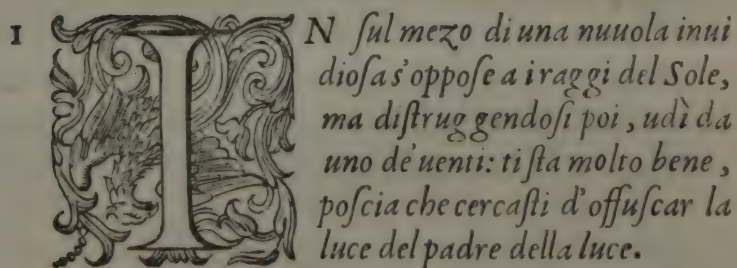 1 IN ſul mezo di una nuuola inui
dioſa s'oppoſe a i raggi del Sole,
ma diſtruggendoſi poi, udì da
uno de'uenti: ti ſta molto bene,
poſcia che cercaſti d'offuſcar la
luce del padre della luce.